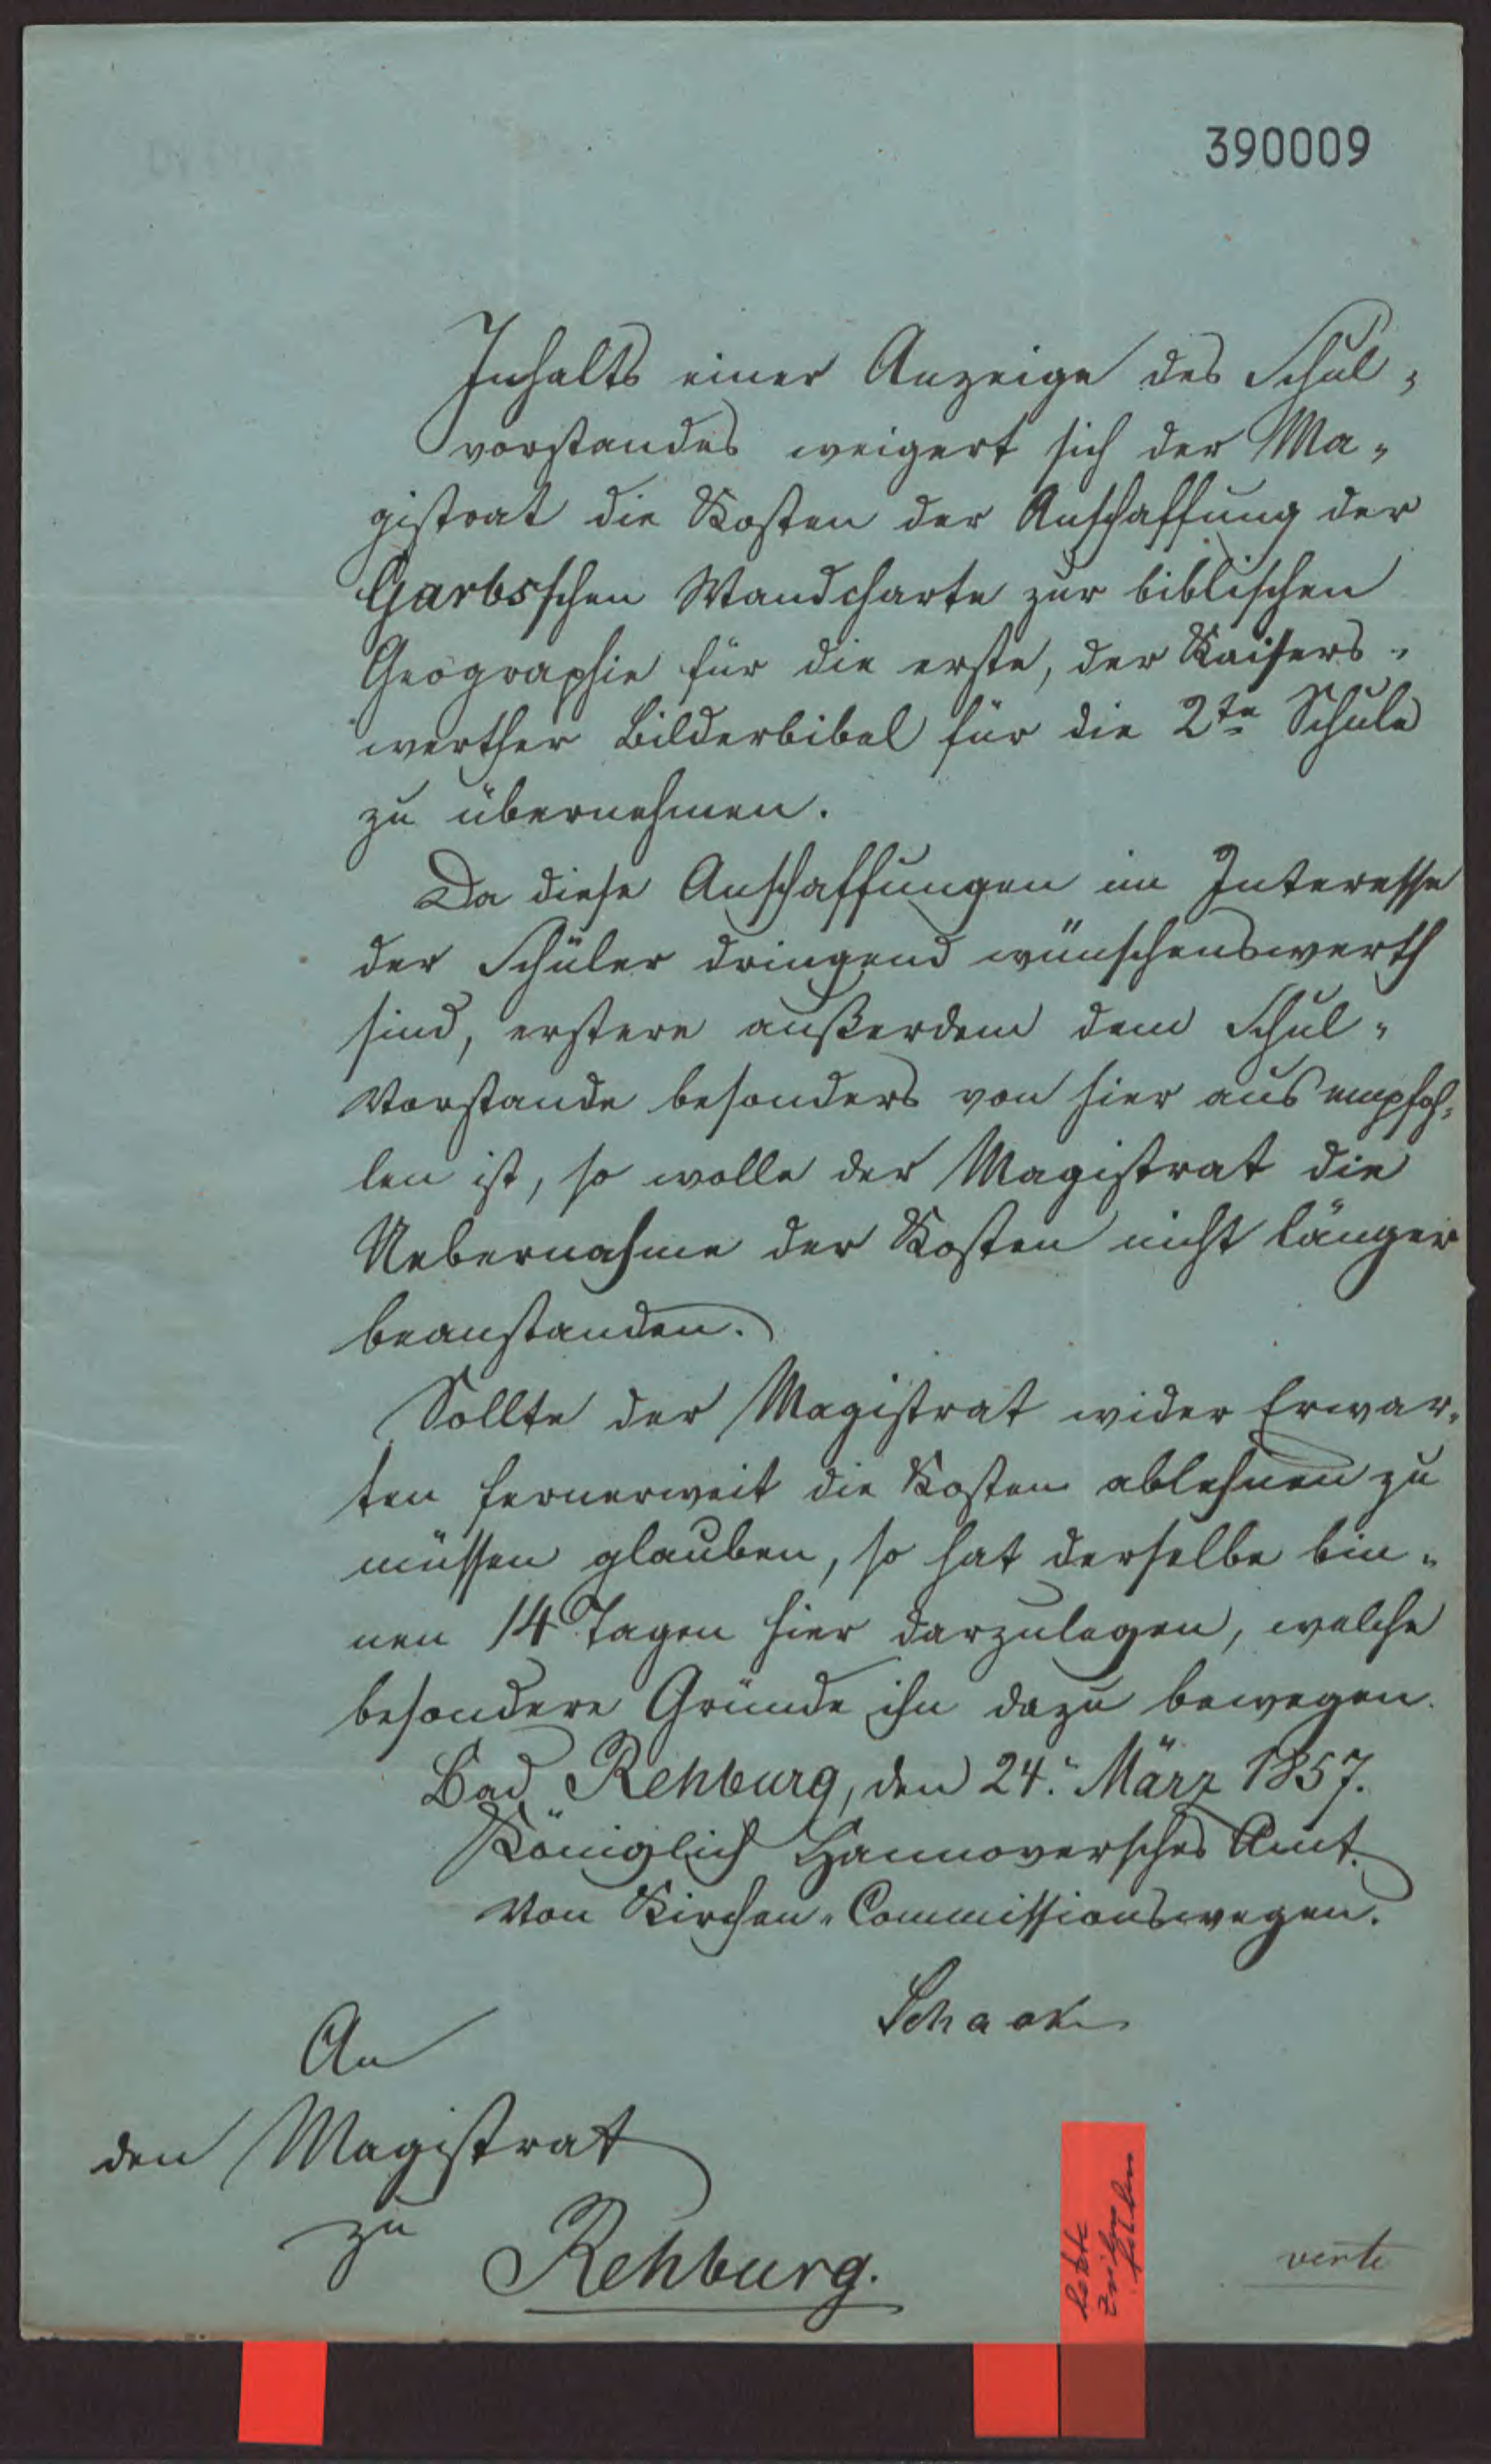 390009
Inhalts einer Anzeige des Schul-
vorstandes weigert sich der Ma-
gistrat die Kosten der Anschaffung der
Garbsschen Wandcharte zur biblischen
Geographie für die erste, der Kaisers-
werther Bilderbibel für die 2te Schule
zu übernehmen.
Da diese Anschaffungen im Interesse
der Schüler dringend wünschenswerth
sind, erstere außerdem dem Schul-
Vorstande besonders von hier aus empfoh-
len ist, so wolle der Magistrat die
Uebernahme der Kosten nicht länger
beanstanden.
Sollte der Magistrat wider Erwar-
ten fernerweit die Kosten ablehnen zu
müssen glauben, so hat derselbe bin-
nen 14 Tagen hier darzulegen, welche
besondere Gründe ihn dazu bewegen.
Bad Rehburg, den 24. März 1857.
Königlich Hannoversches Amt.
Von Kirchen-Commissionswegen.
Schack
An
den Magistrat
zu
Rehburg.
verte
letzte
Zeilen
fehlen